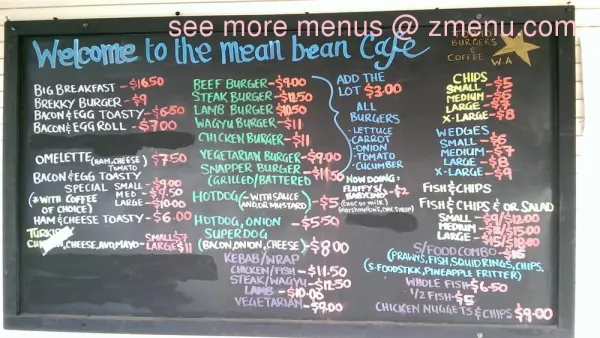 see more menus @ zmenu.com
Welcome to the mean bean Café
BURGERS
&
COFFEE
W.A
BIG BREAKFAST - $16.50
BREKKY BURGER - $9
BACON & EGG TOASTY - $6.50
BACON & EGG ROLL - $7.00
OMELETTE (HAM, CHEESE, TOMATO $7.50
BACON & EGG TOASTY
SPECIAL SMALL - $9.00
(*WITH COFFEE OF CHOICE) MED - $9.50
LARGE - $10.00
HAM & CHEESE TOASTY - $6.00
CHEESE, AVO, MAYO - SMALL $7
LARGE $11
BEEF BURGER - $9.00
STEAK BURGER - $12.50
LAMB BURGER
WAGYU BURGER - $11
CHICKEN BURGER - $11
VEGETARIAN BURGER - $9.00
SNAPPER BURGER - $11.50
(GRILLED/BATTERED
HOTDOG (-WITH SAUCE AND/OR MUSTARD) - $5
HOTDOG, ONION - $5.50
SUPERDOG
(BACON, ONION, CHEESE) - $8.00
KEBAB/WRAP
CHICKEN/FISH - $11.50
STEAK/WAGYU - $12.50
LAMB - $10.00
VEGETARIAN - $9.00
ADD THE
LOT $3.00
ALL
BURGERS
- LETTUCE
- CARROT
- ONION
- TOMATO
- CUCUMBER
NOW DOING:
FLUFFY'S/
BABYCINO'S - $2
CHIPS
SMALL - $5
MEDIUM - $6
LARGE - $7
X-LARGE - $8
WEDGES
SMALL - $6
MEDIUM - $7
LARGE - $8
X-LARGE - $9
FISH & CHIPS
FISH & CHIPS & OR SALAD
SMALL - $9/$12.00
MEDIUM - $12/$15.00
LARGE - $15/$18.00
S/FOOD COMBO - $16
(PRAWNS, FISH, SQUID RINGS, CHIPS,
(S-FOODSTICK, PINEAPPLE FRITTER)
WHOLE FISH - $6.50
1/2 FISH - $5
CHICKEN NUGGETS & CHIPS $9.00